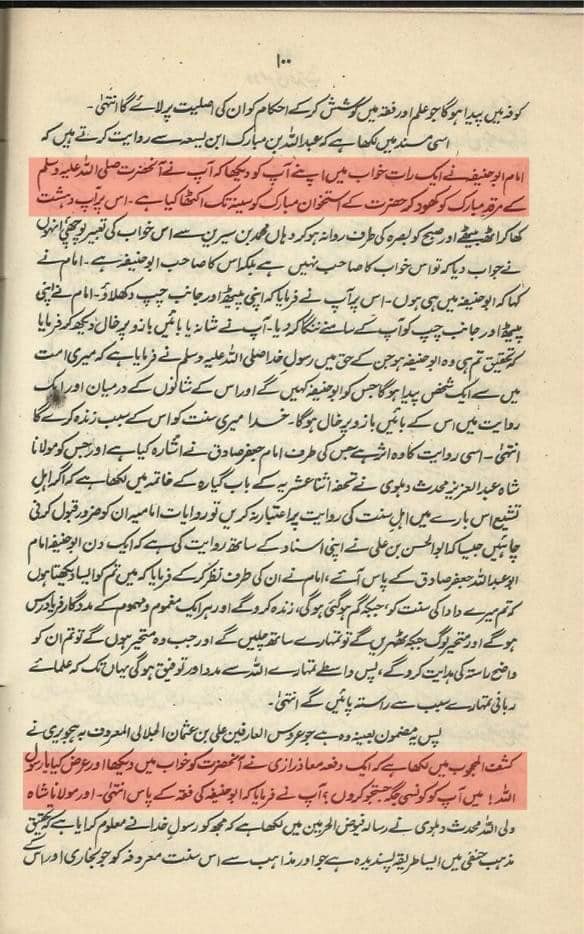 ۱۰۰
کوفہ میں پیدا ہوگا جو علم اور فقہ میں کوشش کرکے احکام کو ان کی اصلیت پر لائے گا انتہٰی۔
اسی مسند میں لکھا ہے کہ عبداللہ بن مبارک ابن لسیعہ سے روایت کرتے ہیں کہ
امام ابوحنیفہ نے ایک رات خواب میں اپنے آپ کو دیکھا کہ آپ نے آنحضرت صلی اللہ علیہ وسلم
کے مرقد مبارک کو کھود کر حضرت کے استخوان مبارک کو سینہ تک اکٹھا کیا ہے۔ اس پر آپ دہشت
کھا کر اٹھ بیٹھے اور صبح کو بصرہ کی طرف روانہ ہو کر وہاں محمد بن سیرین سے اس خواب کی تعبیر پوچھی انہوں
نے جواب دیا کہ تو اس خواب کا صاحب نہیں ہے بلکہ اس کا صاحب ابوحنیفہ ہے۔ امام نے
کہا کہ ابوحنیفہ میں ہی ہوں۔ اس پر آپ نے فرمایا کہ اپنی پیٹھ اور جانب چپ دکھلاؤ۔ امام نے اپنی
پیٹھ اور جانب چپ کو آپ کے سامنے ننگا کر دیا۔ آپ نے شانہ یا بائیں بازو پر خال دیکھ کر فرمایا
کہ تحقیق تم ہی وہ ابوحنیفہ ہو جن کے حق میں رسول خدا صلی اللہ علیہ وسلم نے فرمایا ہے کہ میری امت
میں سے ایک شخص پیدا ہوگا جس کو ابوحنیفہ کہیں گے اور اس کے شانوں کے درمیان اور ایک
روایت میں اس کے بائیں بازو پر خال ہوگا۔ خدا میری سنت کو اس کے سبب زندہ کرے گا
انتہٰی۔ اسی روایت کا وہ اثر ہے جس کی طرف امام جعفر صادق نے اشارہ کیا ہے اور جس کو مولانا
شاہ عبدالعزیز محدث دہلوی نے تحفہ اثنا عشریہ کے باب گیارہ کے خاتمہ میں لکھا ہے کہ اگر اہل
تشیع اس بارے میں اہل سنت کی روایت پر اعتبار نہ کریں تو روایات امامیہ ان کو ضرور قبول کرنی
چاہئیں جیسا کہ ابوالحسن بن علی نے اپنی اسناد کے ساتھ روایت کی ہے کہ ایک دن ابوحنیفہ امام
ابوعبداللہ جعفر صادق کے پاس آئے، امام نے ان کی طرف نظر کرکے فرمایا کہ میں تم کو ایسا دیکھتا ہوں
کہ تم میرے دادا کی سنت کو، جبکہ گم ہوگئی ہوگی، زندہ کرو گے اور ہر ایک مغموم و مہموم کے مددگار فریادرس
ہوگے اور متحیر لوگ جبکہ ٹھہریں گے تو تمہارے ساتھ چلیں گے اور جب وہ متحیر ہوں گے تو تم ان کو
واضح راستہ کی ہدایت کرو گے، پس واسطے تمہارے اللہ سے مدد اور توفیق ہوگی یہاں تک کہ علمائے
ربانی تمہارے سبب سے راستہ پائیں گے انتہٰی۔
پس یہ مضمون بعینہ وہ ہے جو عروس العارفین علی بن عثمان الجلالی المعروف بہ ہجویری نے
کشف المحجوب میں لکھا ہے کہ ایک دفعہ معاذ رازی نے آنحضرت کو خواب میں دیکھا اور عرض کیا یا رسول
اللہ! میں آپ کو کونسی جگہ جستجو کروں؟ آپ نے فرمایا کہ ابوحنیفہ کی فقہ کے پاس انتہٰی۔ اور مولانا شاہ
ولی اللہ محدث دہلوی نے رسالہ فیوض الحرمین میں لکھا ہے کہ مجھ کو رسول خدا نے معلوم کرایا ہے کہ تحقیق
مذہب حنفی میں ایسا طریقہ پسندیدہ ہے جو اور مذاہب سے اس سنت معروفہ کو جو بخاری اور اس کے